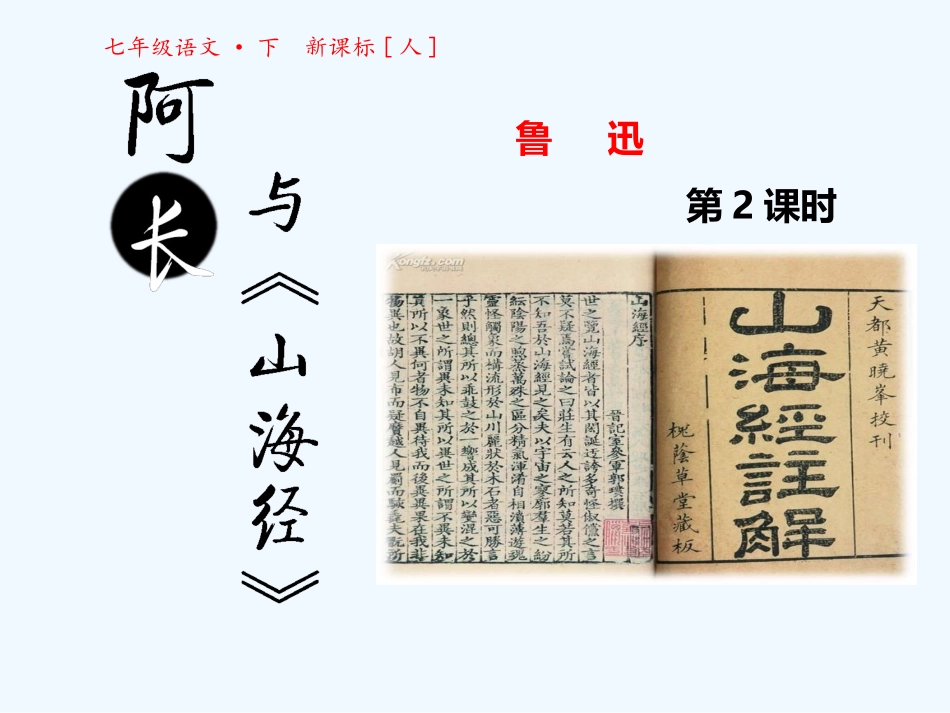 七年级语文·下 新课标[人]
阿长
与《山海经》
鲁 迅
第2课时
kongfz.com
山海經序
晉記室參軍郭璞撰
世之覽山海經者皆以其閎誕迂誇多奇怪俶儻之言
莫不疑焉嘗試論之曰莊生有云人之所知莫若其所
不知吾於山海經見之矣夫以宇宙之寥廓羣生之紛
紜陰陽之煦蒸萬殊之區分精氣渾淆自相濆薄遊魂
靈怪觸象而構流形於山川麗狀於木石者惡可勝言
乎然則總其所以乖鼓之於一響成其所以變混之於
一象世之所謂異未知其所以異世之所謂不異未知
其所以不異何者物不自異待我而後異異果在我非
物異也故胡人見布而疑黂越人見罽而駭毳夫翫所
天都黃曉峯校刊
山海經註解
桃蔭草堂藏板